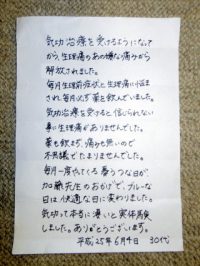 気功治療を受けるようになって
から、生理痛のあの嫌な痛みから
解放されました。
毎月生理前症状と生理痛に悩ま
され、毎月必ず薬を飲んでいました。
気功治療を受けると信じられない
事に生理痛がありませんでした。
薬も飲まず、痛みも無いので
不思議でたまりませんでした。
毎月一度やってくる憂うつな日が
加藤先生のおかげで、ブルーな
日は快適な日に変わりました。
気功って本当に凄いと実体験
しました。ありがとうございます。
平成25年6月4日 30代